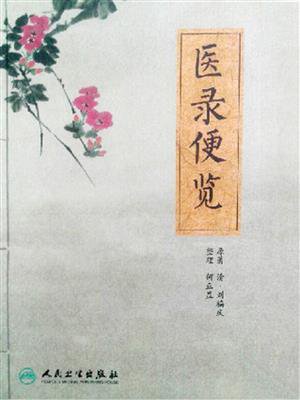 医录便览
原著 清·刘福庆
整理 何应显
人民卫生出版社
PEOPLE'S MEDICAL PUBLISHING HOUSE